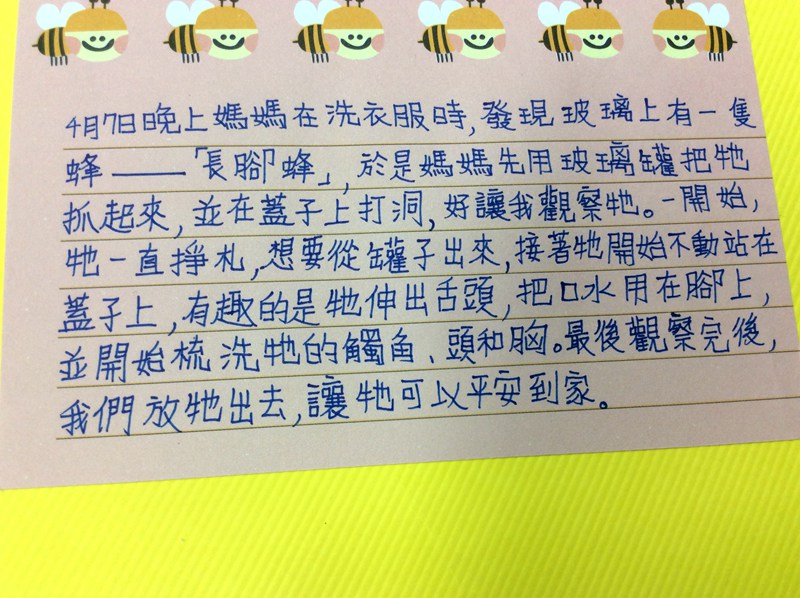 4月7日晚上媽媽在洗衣服時,發現玻璃上有一隻
蜂——「長腳蜂」,於是媽媽先用玻璃罐把牠
抓起來,並在蓋子上打洞,好讓我觀察牠。一開始,
牠一直掙札,想要從罐子出來,接著牠開始不動站在
蓋子上,有趣的是牠伸出舌頭,把口水用在腳上,
並開始梳洗牠的觸角、頭和胸。最後觀察完後,
我們放牠出去,讓牠可以平安到家。